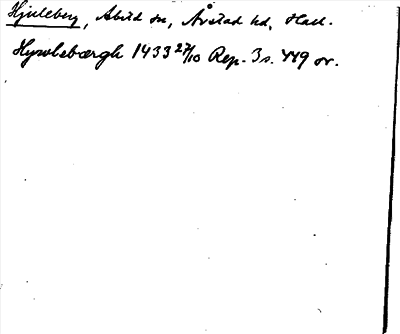 Hjuleberg, Abild sn, Årstad hd, Hall.
Hywlsbærgh 1433 27/10 Rep. 3 s. 449 or.